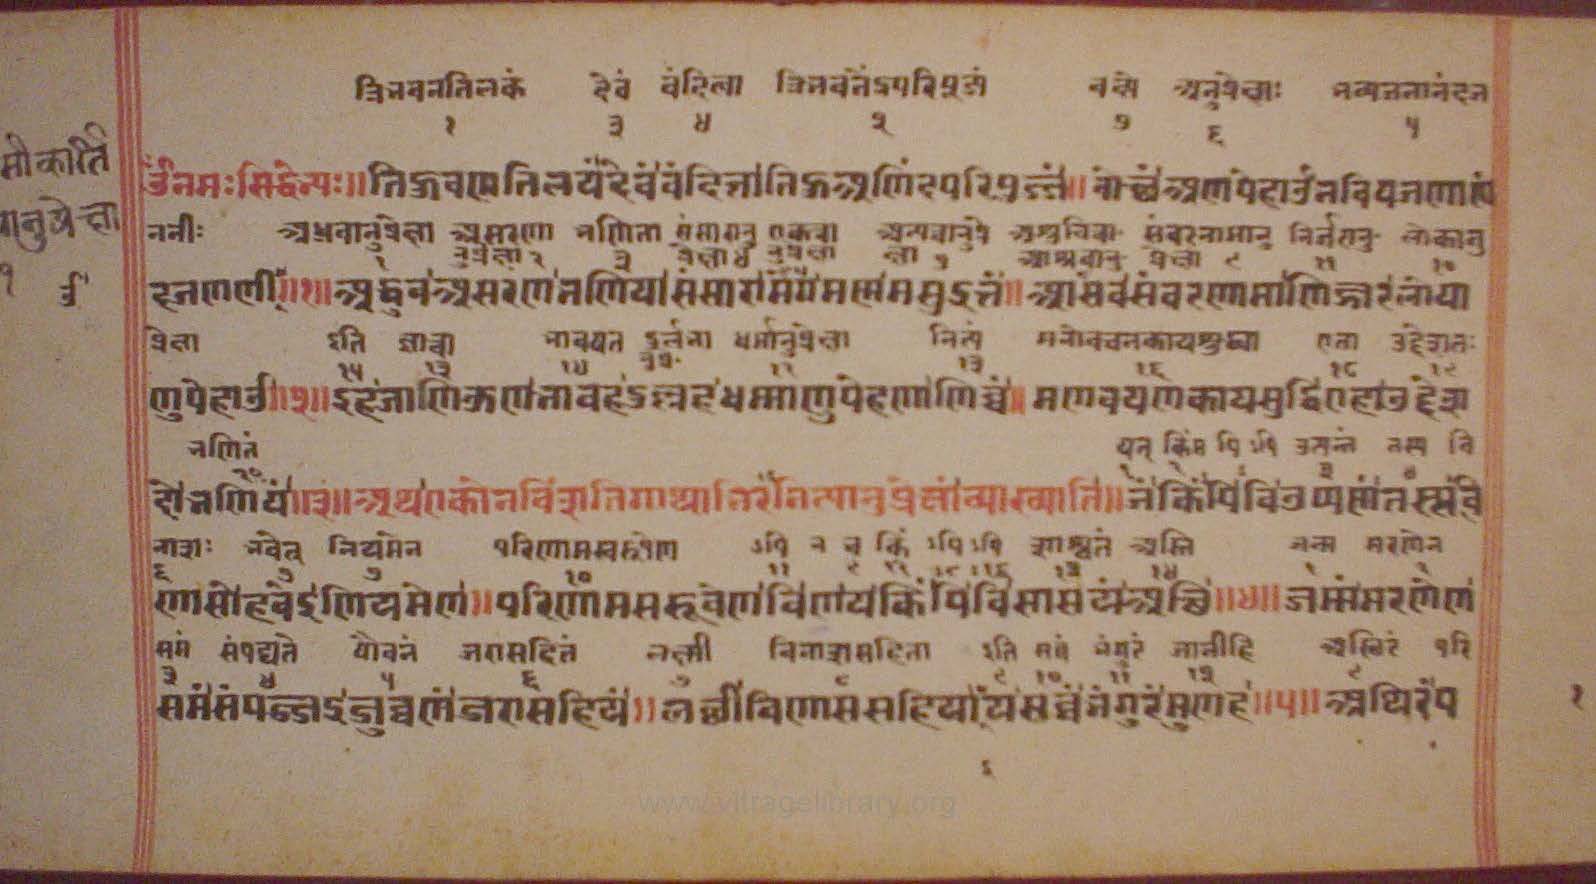 त्रिभवनतिलकं देवं वंदित्वा त्रिभवनेंऽपरिपूज्यं वक्ष्ये अनुप्रेक्षाः भव्यजनानंदज
१ ३ ४ २ ७ ६ ५
उँनमःसिद्धेभ्यः॥तिऊवणतिलयंदेवंवंदित्तातिऊअणिंदपरिपुज्जं॥वोच्छंअणुपेहाउंनवियजणाणं
ननीः अध्रुवानुप्रेक्षा असरणा भणिता संसारानु एकत्वा अन्यत्वानुप्रे अशुचित्वा संवरनामानु निर्जरानु लोकानु
दजणणी॥१॥अद्धुवंअसरणंभणियासंसारामेगमणंमसुइत्तं॥आसवसंवरणामाणिज्जरलोया
प्रेक्षा इति ज्ञात्वा भावयत दुर्लभा धर्मानुप्रेक्षा नित्यं मनोवचनकायशुद्ध्या एता उद्देशतः
णुपेहाउं॥२॥इहजाणिऊणभावहदुल्लहधम्माणुपेहणाणिच्चं॥मणवयणकायसुद्धिएहाउद्देशा
भणितं यत् किं अपि अपि उत्पन्नं तस्य वि
दोभणियं॥३॥अथएकोनविंशतिगाथाभिरनित्यानुप्रेक्षांव्याख्याति॥जंकिंपिविउप्पणंतस्सवि
नाशः भवेत् नियमेन परिणामस्वरूपेण अपि न च किं अपि अपि शाश्वतं अस्ति जन्म मरणेन
णासोहवेइणियमेण॥परिणामसरूवेणविणयकिंपिविसासयंअत्थि॥४॥जम्मंमरणेण
समं संपद्यते यौवनं जरासहितं लक्ष्मी विनाशसहिता इति सर्वं भंगुरं जानीहि अस्थिरं परि
३ ४ ५ ६ ७ ८ ९ १० ११ १२
समंसंपज्जइजुव्वणंजरासहियं॥लच्छीविणाससहियायसव्वंभंगुरंमुणह॥५॥अथिरंप
www.vitragelibrary.org